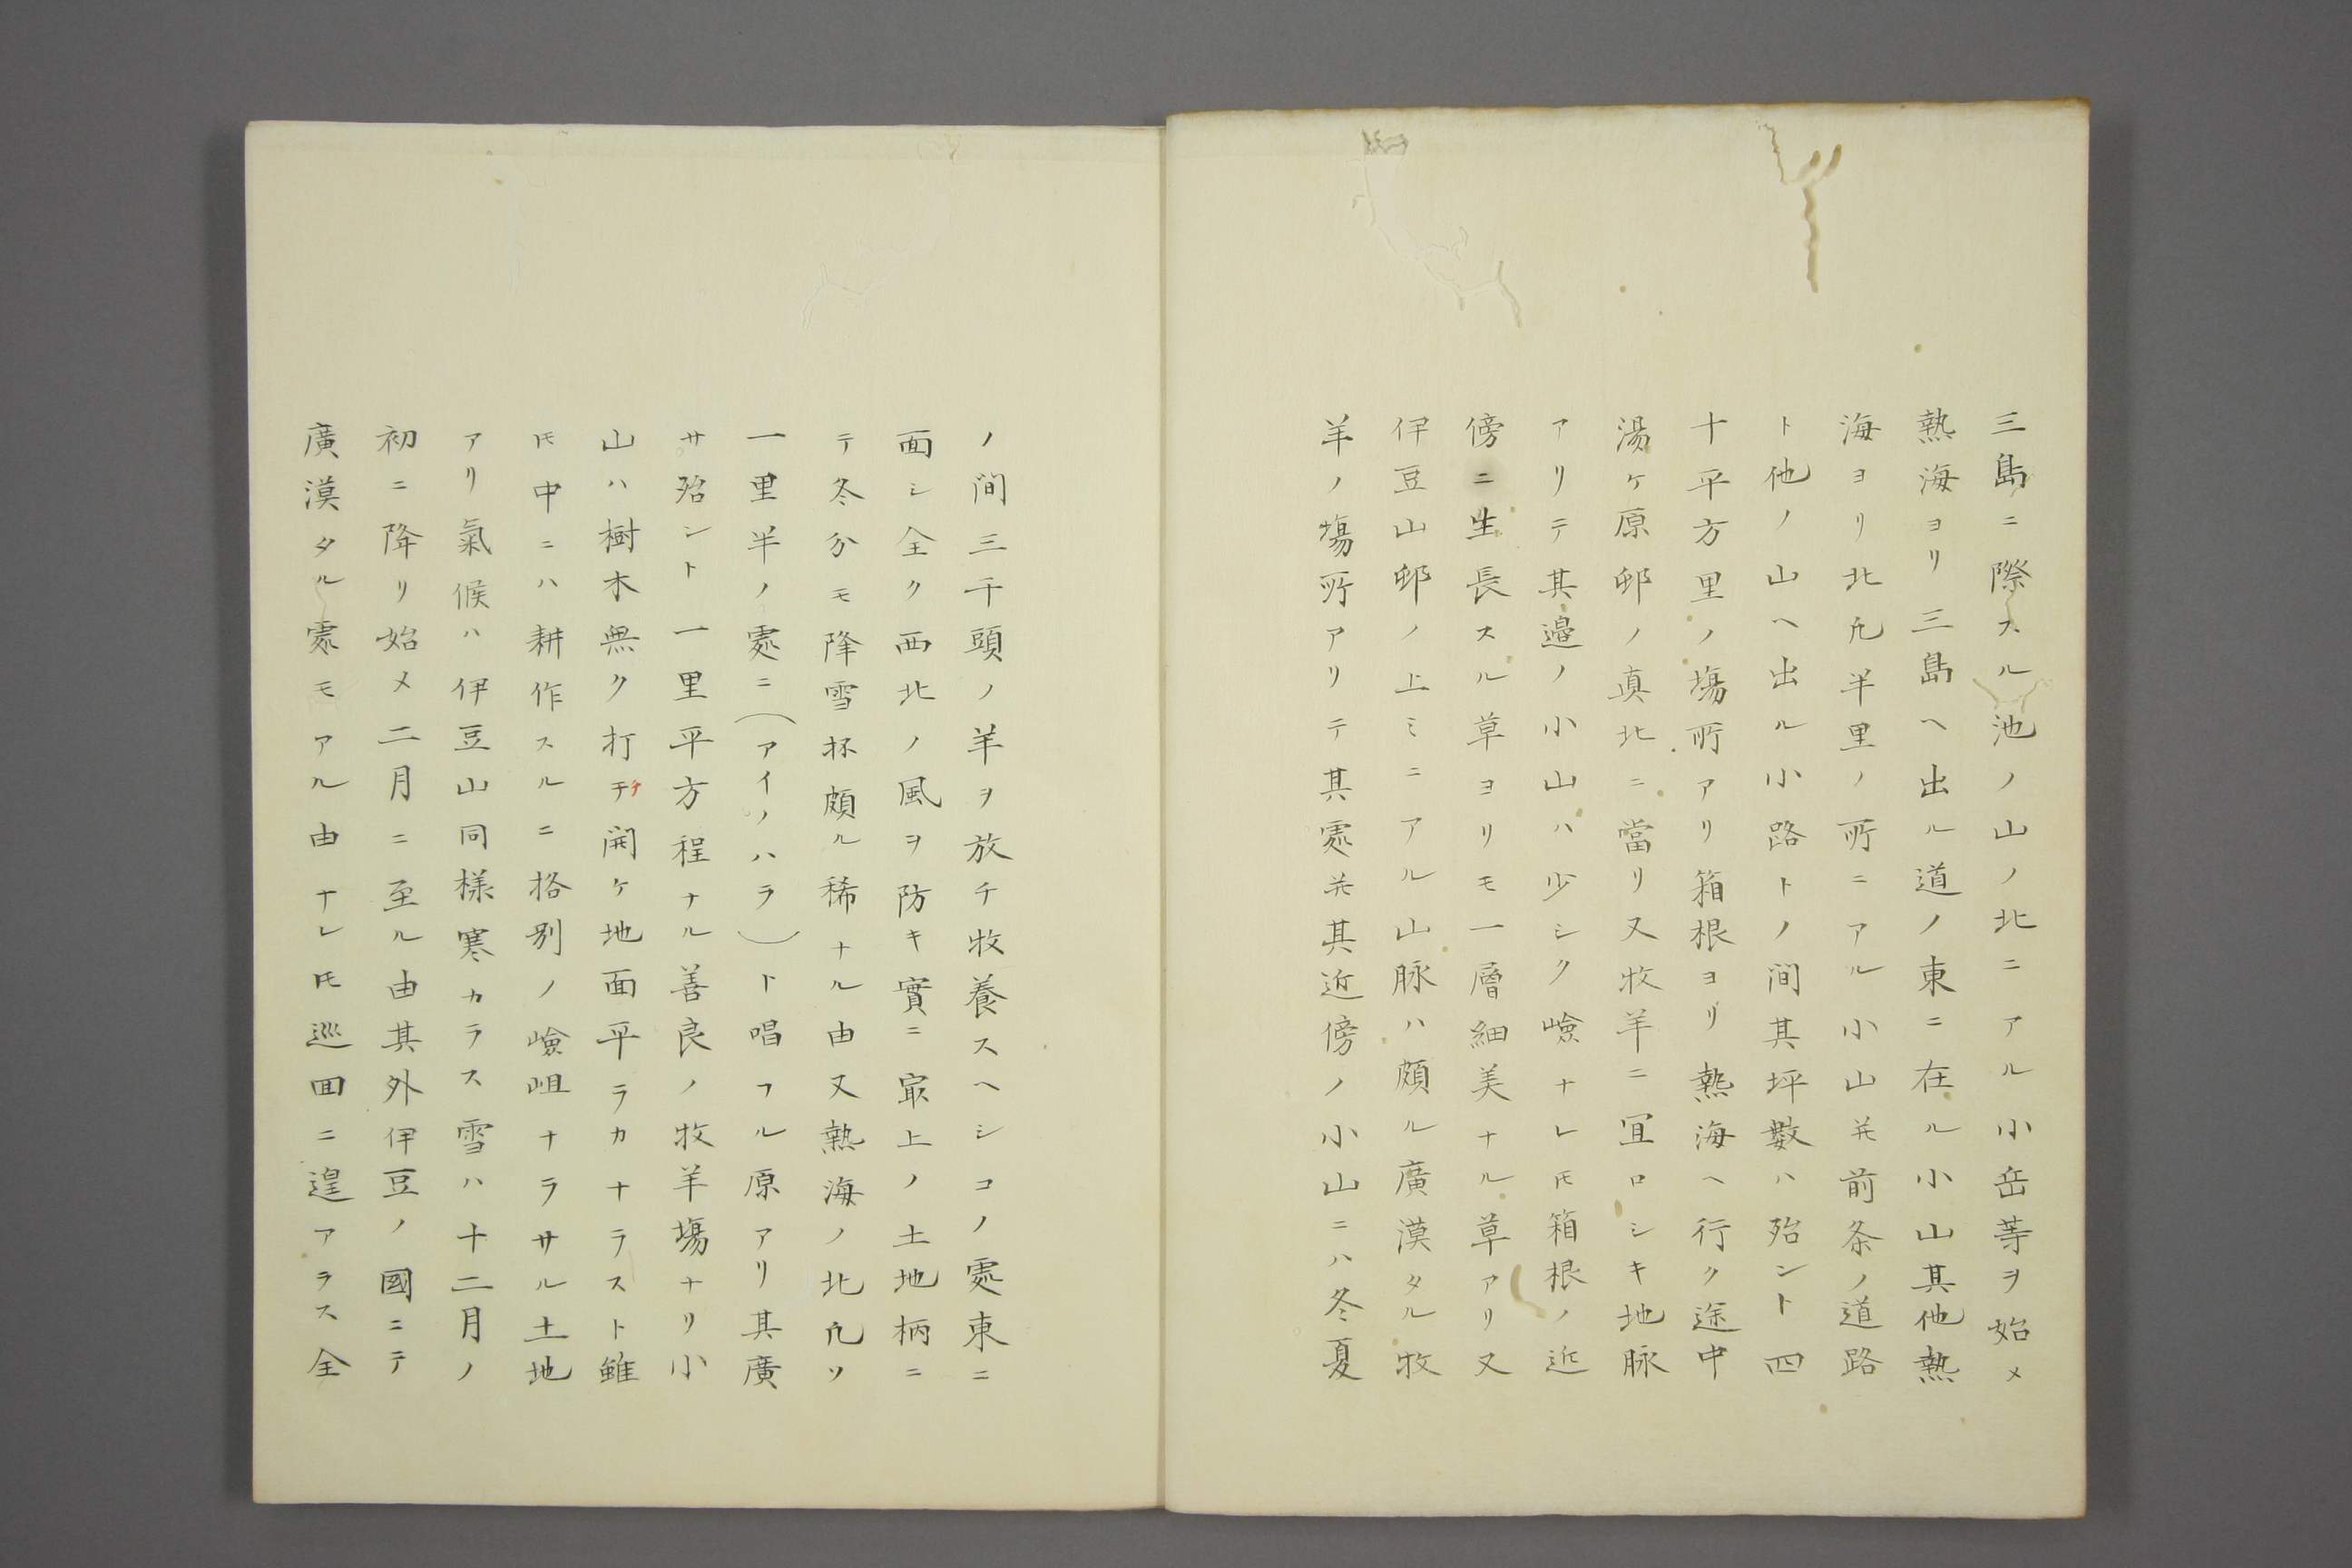 三島ニ際スル池ノ山ノ北ニアル小岳等ヲ始メ
熱海ヨリ三島ヘ出ル道ノ東ニ在ル小山其他熱
海ヨリ北凡半里ノ所ニアル小山并前条ノ道路
ト他ノ山ヘ出ル小路トノ間其坪數ハ殆ント四
十平方里ノ塲所アリ箱根ヨリ熱海ヘ行ク途中
湯ケ原邨ノ真北ニ當リ又牧羊ニ冝ロシキ地脉
アリテ其邉ノ小山ハ少シク嶮ナレ𪜈箱根ノ近
傍ニ生長スル草ヨリモ一層細美ナル草アリ又
伊豆山邨ノ上ミニアル山脉ハ頗ル廣漠タル牧
羊ノ塲所アリテ其䖏并其近傍ノ小山ニハ冬夏
ノ間三千頭ノ羊ヲ放チ牧養スヘシコノ䖏東ニ
面シ全ク西北ノ風ヲ防キ實ニ冣上ノ土地柄ニ
テ冬分モ降雪抔頗ル稀ナル由又熱海ノ北凡ソ
一里半ノ䖏ニ(アイノハラ)ト唱フル原アリ其廣
サ殆ント一里平方程ナル善良ノ牧羊塲ナリ小
山ハ樹木無ク打チ開ケ地面平ラカナラスト雖
𪜈中ニハ耕作スルニ格別ノ嶮岨ナラサル土地
アリ氣候ハ伊豆山同様寒カラス雪ハ十二月ノ
初ニ降リ始メ二月ニ至ル由其外伊豆ノ國ニテ
廣漠タル䖏モアル由ナレ𪜈巡囬ニ遑アラス全